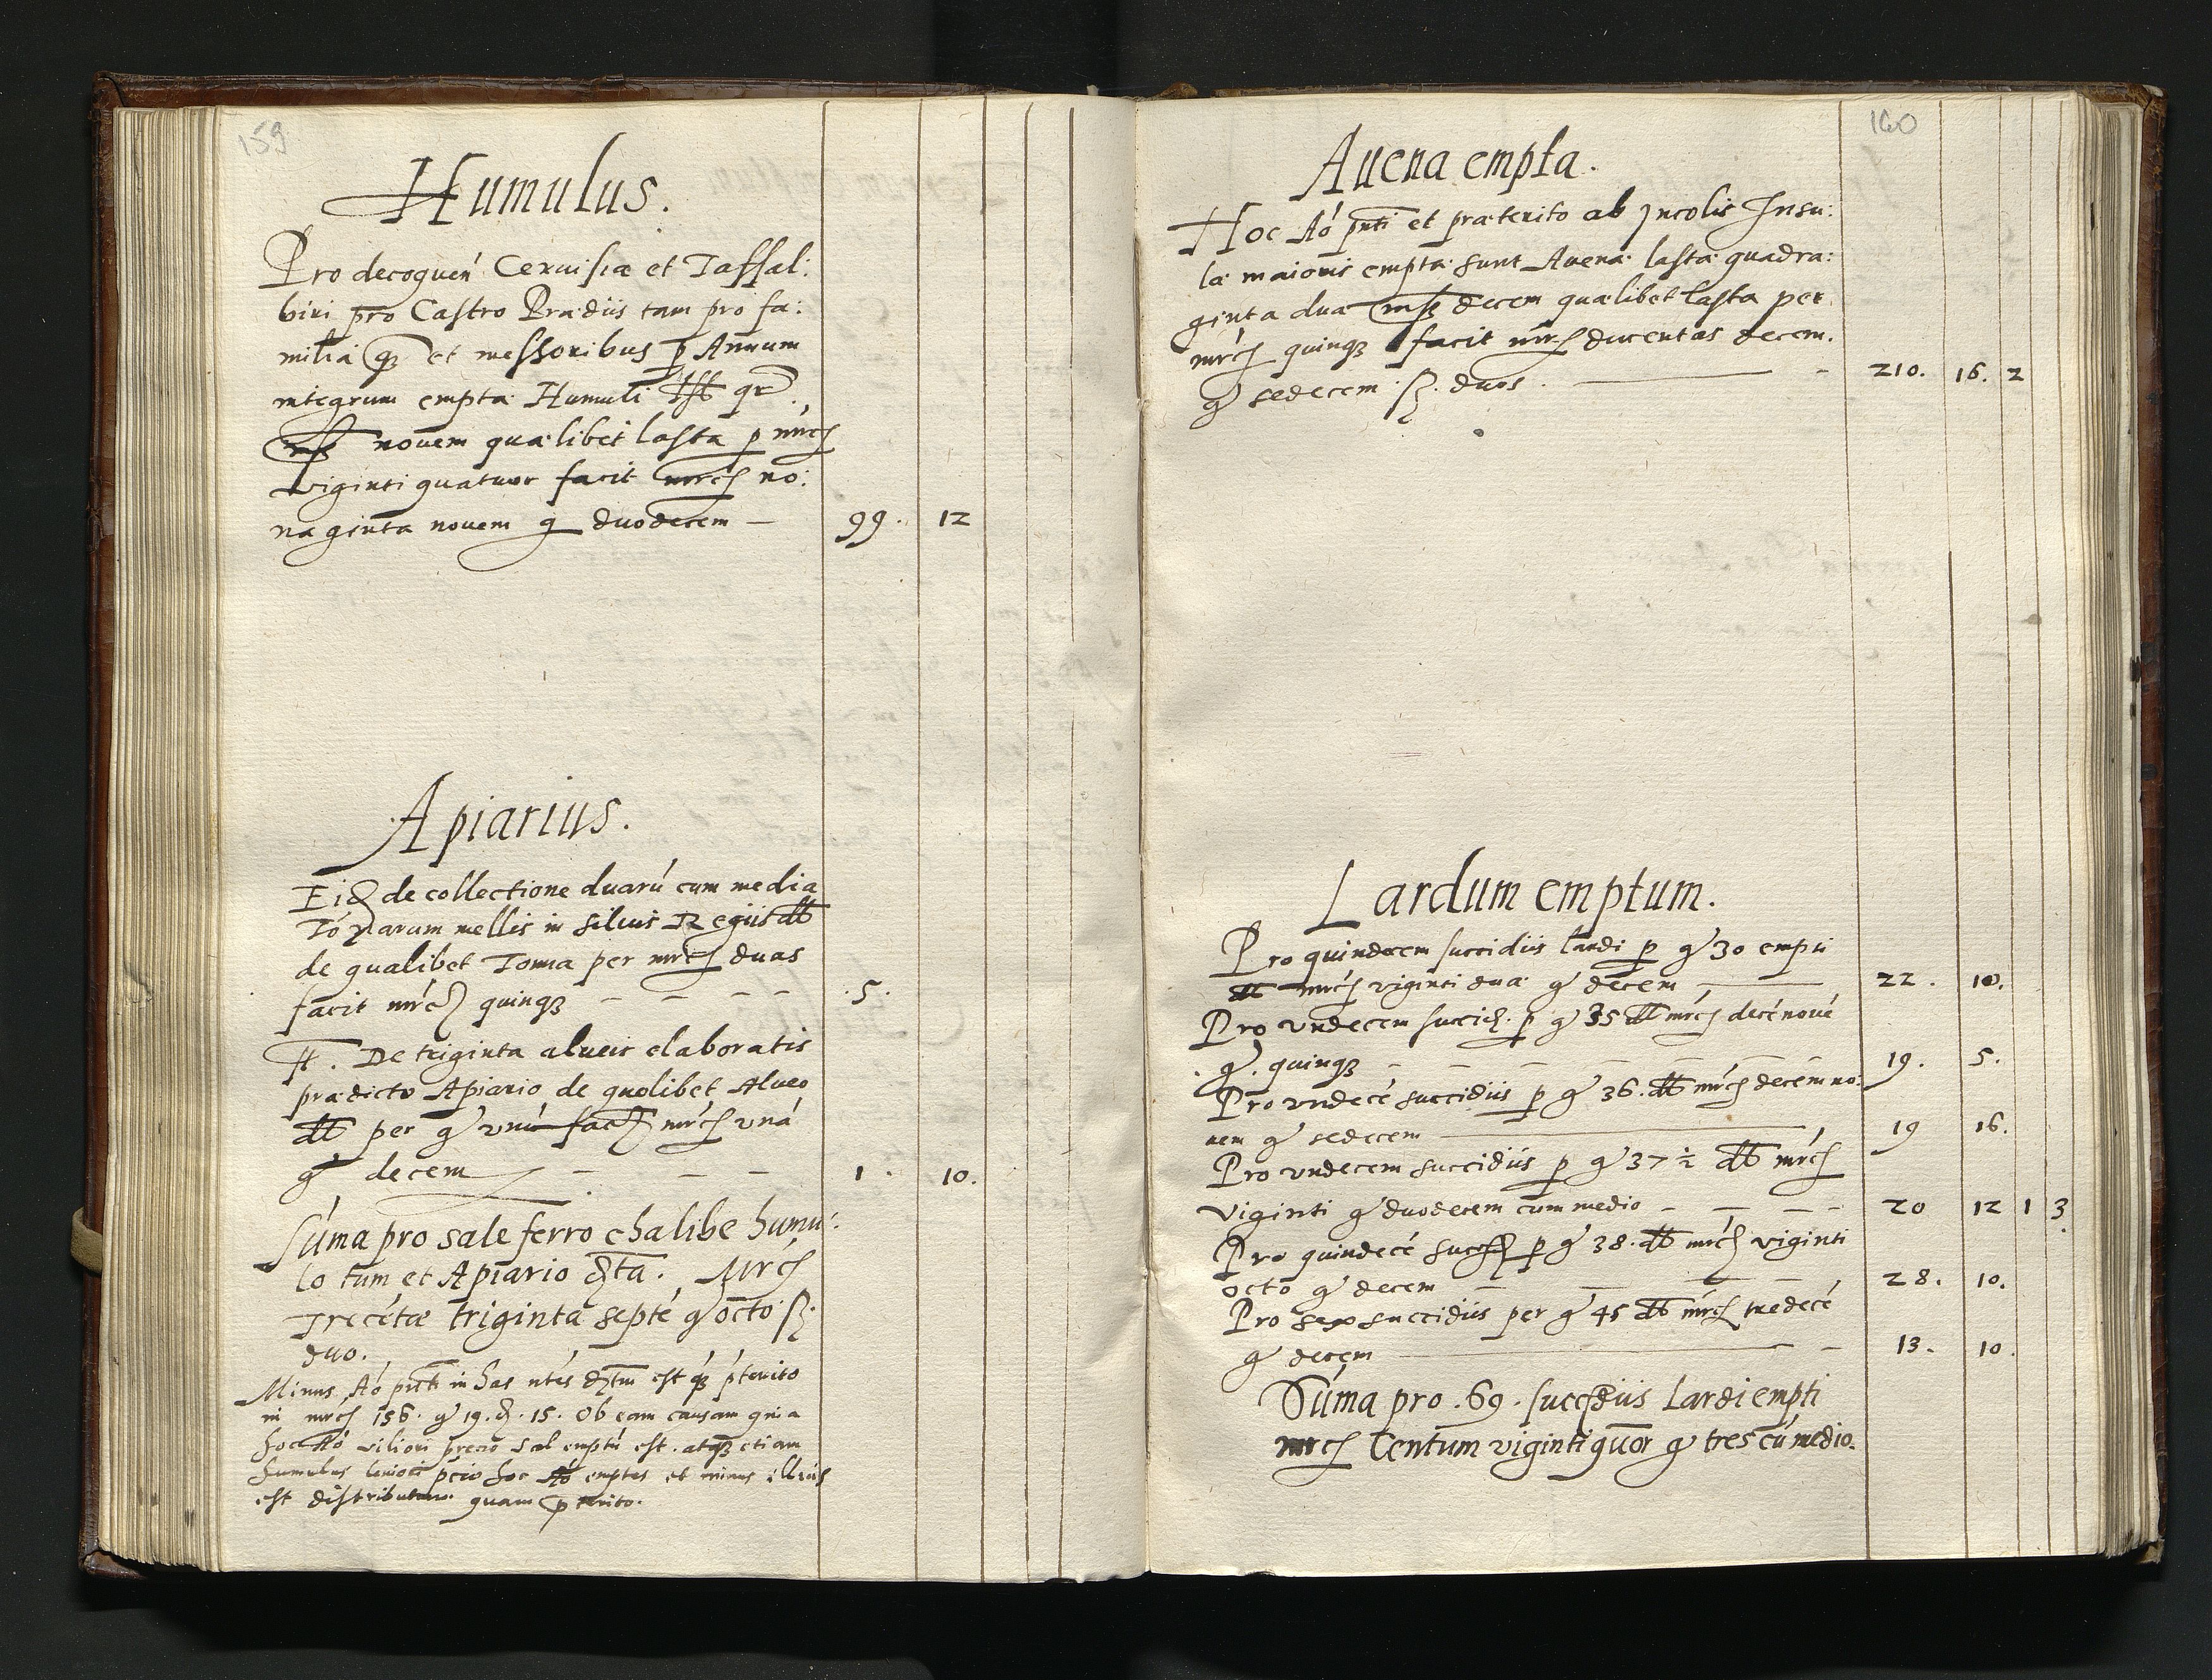 159
Humulus.
Pro decoquen̄ Ceruisiæ et Taffal:
biri pro Castro Prædiis tam pro fa:
milia qз et messoribus p Annum
integrum empta Humuli Lst qr.
nouem quælibet lasta p mrcs
viginti quatuor facit mrcs no:
naginta nouem g duodecem — 99. 12
Apiarius.
Eid de collectione duarú cum media
Tónarum mellis in siluis Regiis dt
de qualibet Tonna per mrcs duas
facit mrcs quinqз – – – – .5.
It. De triginta alueis elaboratis
prædicto Apiario de quolibet Alueo
dt per g vnú facit mrcs vná
g decem – – – 1. 10.
Súma pro sale ferro chalibe humu:
lo tum et Apiario dta. Mrcs
Trecétæ triginta septé g octo ß.
duo.
Minus Aó pnti in has ntés dtm est qз pterito
in mrcs 156. g 19. ß. 15. Ob eam causam quia
hoc Aó viliori precio Sal emptú est. atqз etiam
humulus leuiori pcio hoc Aó emptus et minus illius
est distributum quam pterito.
160
Auena empta.
Hoc Aó pnti et præterito ab Jncolis Insu:
læ maioris empta sunt Auenæ lasta quadra:
ginta dua decem quælibet lasta per
mrcs quinqз facit mrcs ducentas decem.
g sedecem ß. duos. — 210. 16. 2
Lardum emptum.
Pro quindecem succidiis lardi p g 30 empti
dt mrcs viginti duæ g decem — 22. 10.
Pro vndecem succid. p g 35 dt mrcs decé noué
g. quinqз – – – – – – 19. 5.
Pro vndecé succidiis p g 36. dt mrcs decem no:
uem g sedecem — 19 16.
Pro vndecem succidiis p g 37 ½ dt mrcs
viginti g duodecem cum medio – – – – 20 12 1 3
Pro quindecé succid p g 38. dt mrcs viginti
octo g decem – – – – 28. 10.
Pro sex succidiis per g 45 dt mrcs tredecé
g decem — 13. 10.
Súma pro .69. succidiis Lardi empti
mrcs Centum viginti quor g tres cú medio.